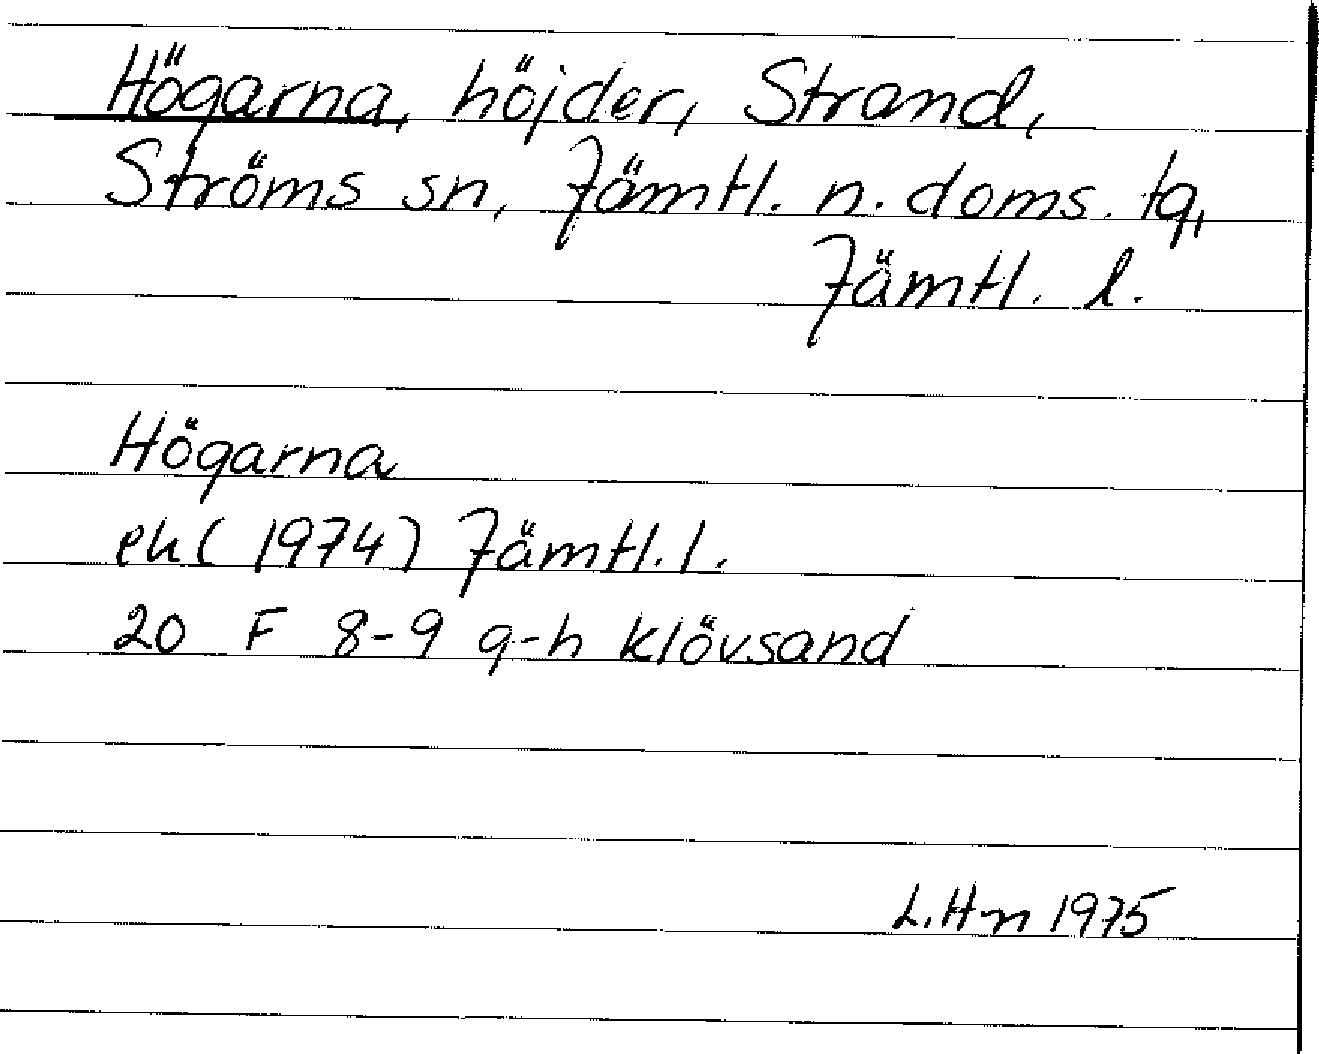 Högarna, höjder, Strand,
Ströms sn, Jämtl. n. doms. tg,
Jämtl. l.
Högarna
ek (1974) Jämtl. l.
20 F 8-9 g-h klövsand
L. Hn 1975